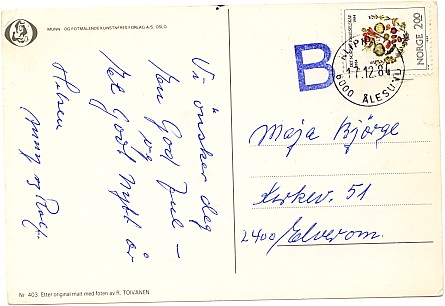 MUNN- OG FOTMALENDE KUNSTNERES FORLAG A/S, OSLO.
Vi ønsker deg
en God Jul –
og
et Godt Nytt år
Hilsen
Nr. 403 Etter original malt med foten av R. TOIVANEN
NORGE 200
B
17.12.84
6000 ÅLESUND
Maja Bjørge
Kirkev. 51
2400 Elverum.